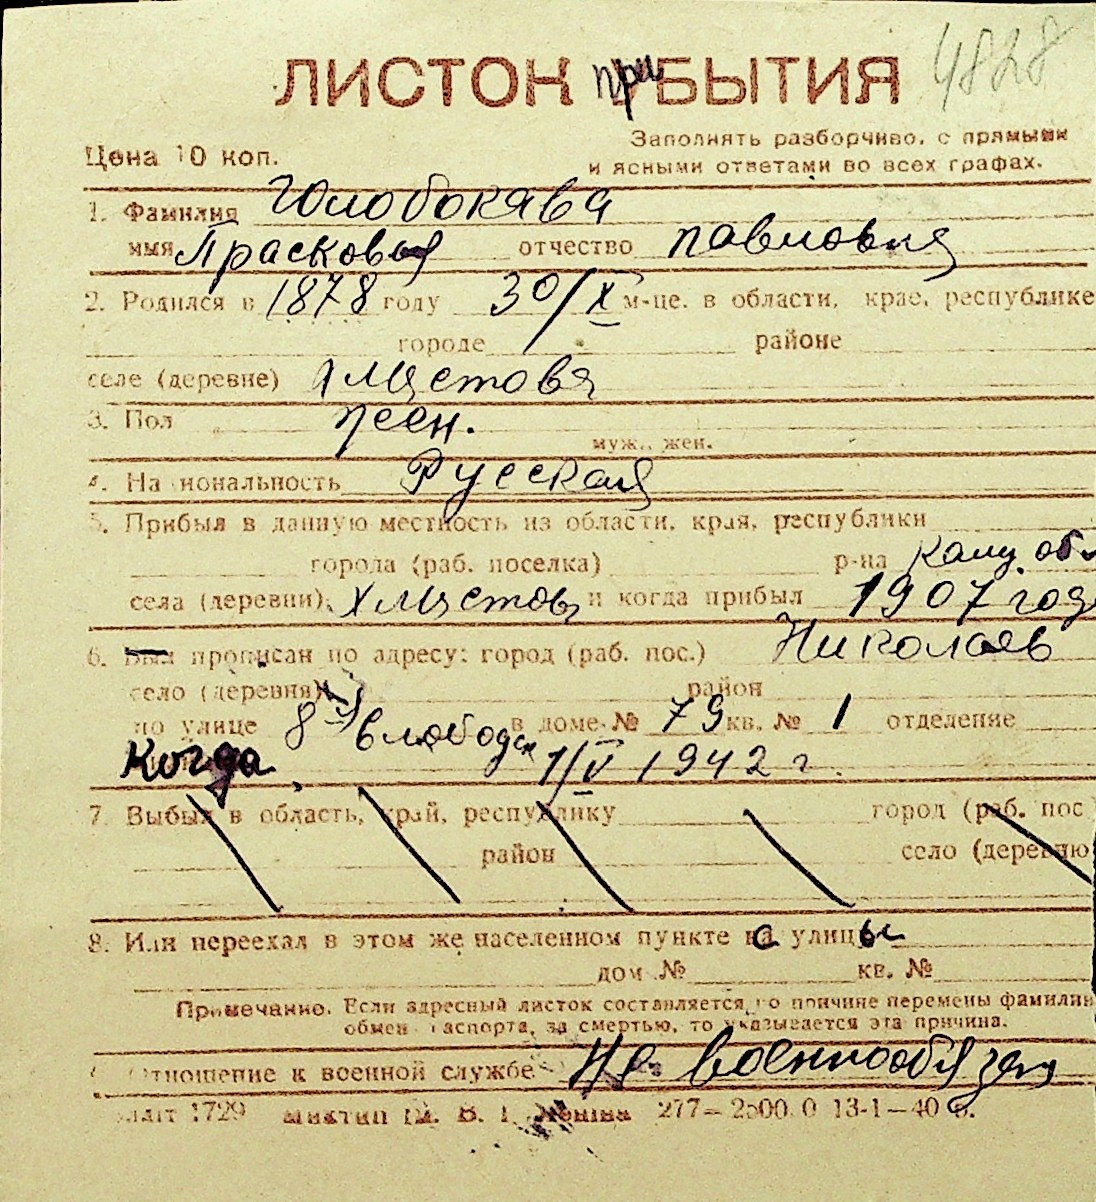 4828
ЛИСТОК приБЫТИЯ
Заполнять разборчиво, с прямыми
и ясными ответами во всех графах.
Цена 10 коп.
1. Фамилия Голобокава
имя Прасковья отчество павловня
2. Родился в 1878 году 30/X м-це. в области, крае, республике
городе районе
селе (деревне) хмистовя
3. Пол жен.
муж., жен.
4. Национальность Русская
5. Прибыл в данную местность из области, края, республики
города (раб. поселка) р-на Калу. обл
села (деревни), Хмистовя и когда прибыл 1907 года
6. Был прописан по адресу: город (раб. пос.) Николаев
село (деревня) район
по улице 8 я влободя в доме № 79 кв. № 1 отделение
Когда 1/V 1942 г.
7. Выбыл в область, край, республику город (раб. пос
район село (деревню
8. Или переехал в этом же населенном пункте са улицы
дом № кв. №
Примечание. Если адресный листок составляется по причине перемены фамилии
обмен паспорта, за смертью, то указывается эта причина.
Отношение к военной службе Не военнообязен
1729 277—2500.0 13-1—40